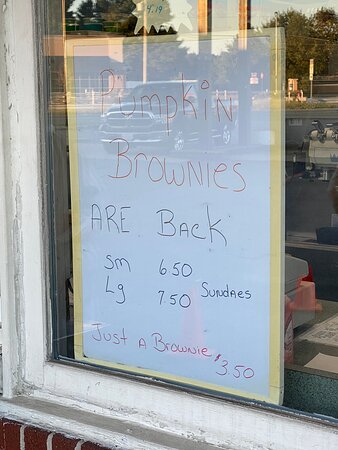 4.19
Pumpkin
Brownies
ARE Back
Sm 6.50
Lg 7.50 Sundaes
Just A Brownie $3.50